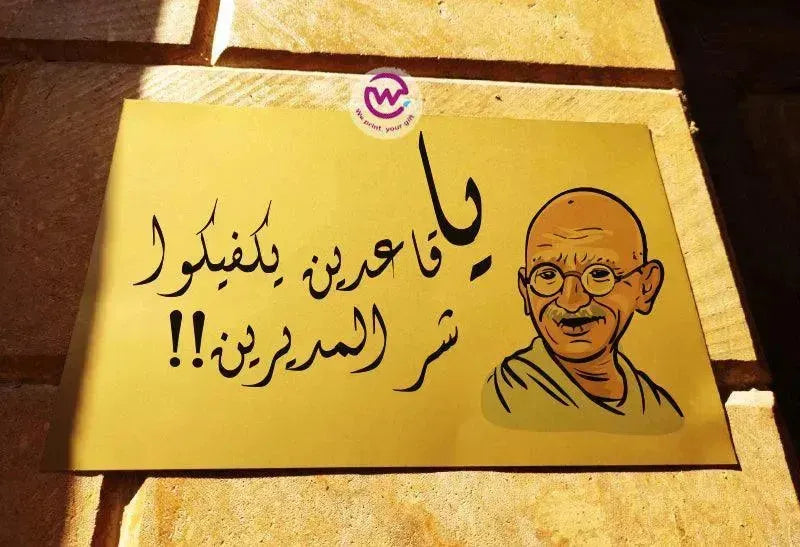 W
Ww print. your gift
يا قاعدين يكفيكوا
شر المديرين!!